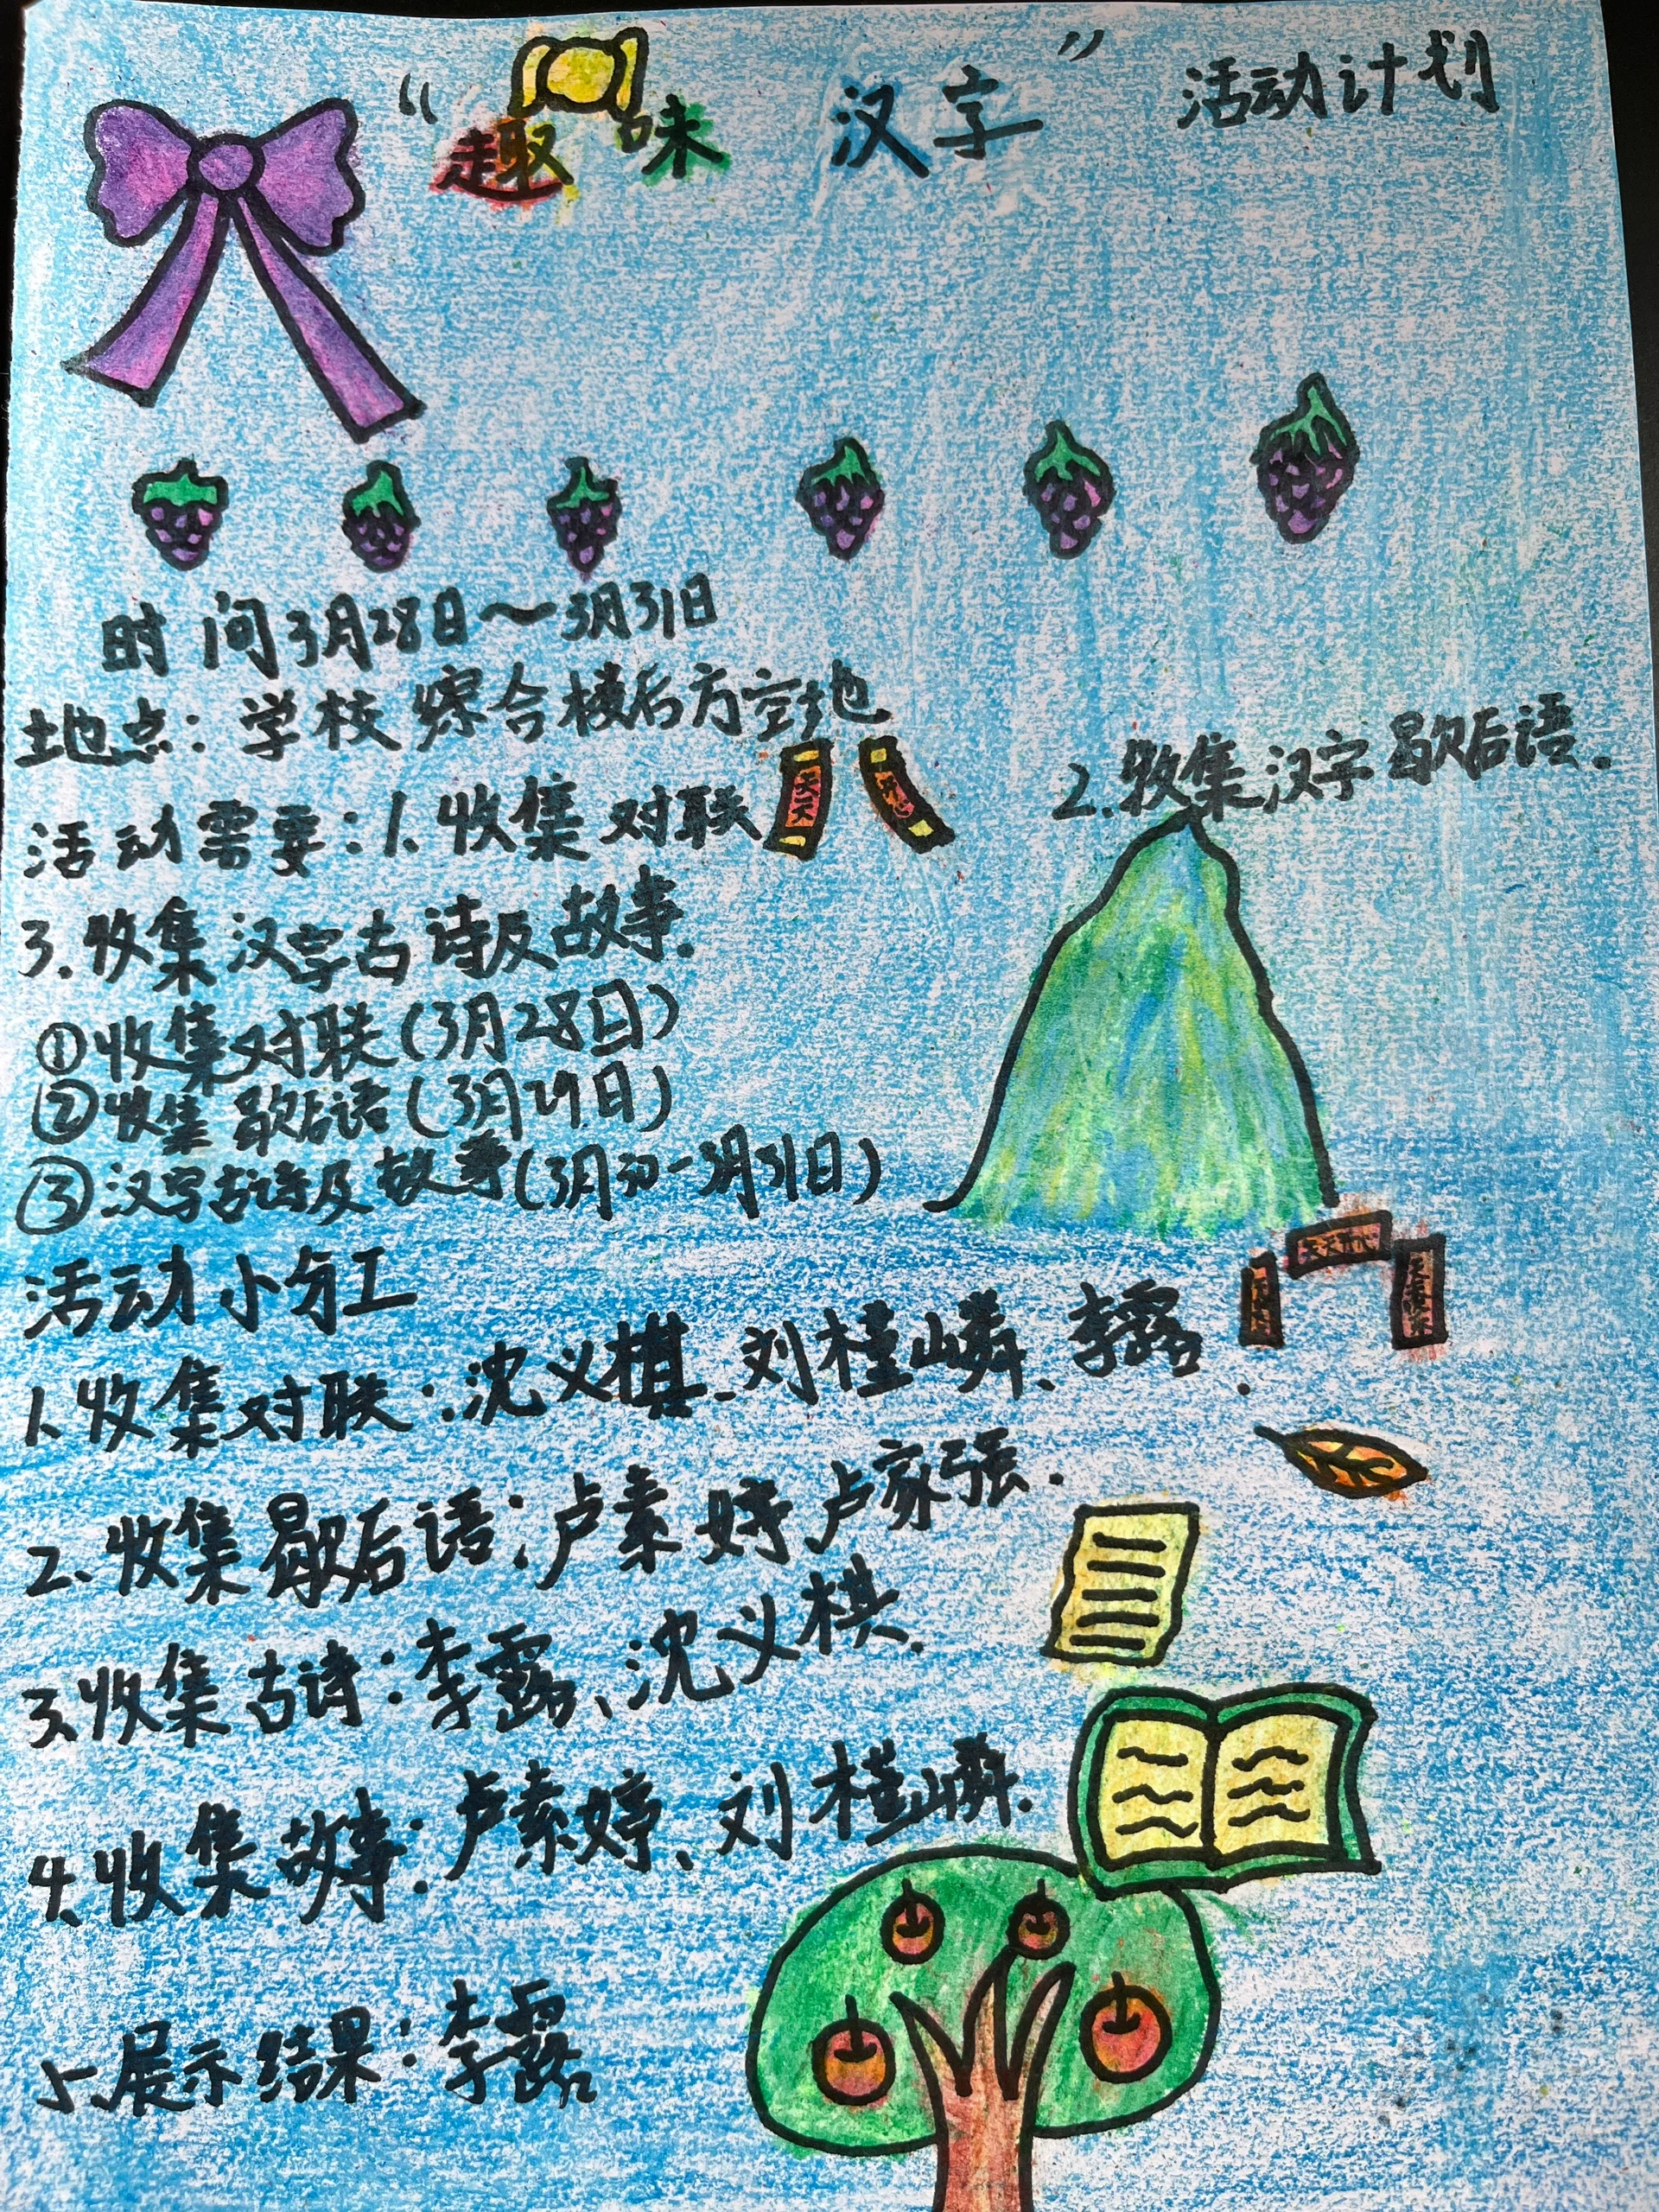 “趣味 汉字”活动计划
时间3月28日~3月31日
地点：学校综合楼后方空地
活动需要：1.收集对联
2.收集汉字歇后语.
3.收集汉字古诗及故事.
①收集对联(3月28日)
②收集歇后语(3月29日)
③汉字古诗及故事(3月30-3月31日)
活动小分工
1.收集对联：沈义棋、刘桂嶙、李露.
2.收集歇后语：卢素婷 卢家强.
3.收集古诗：李露、沈义棋.
4.收集故事：卢素婷、刘桂嶙.
5.展示结果：李露
天天
天天开心